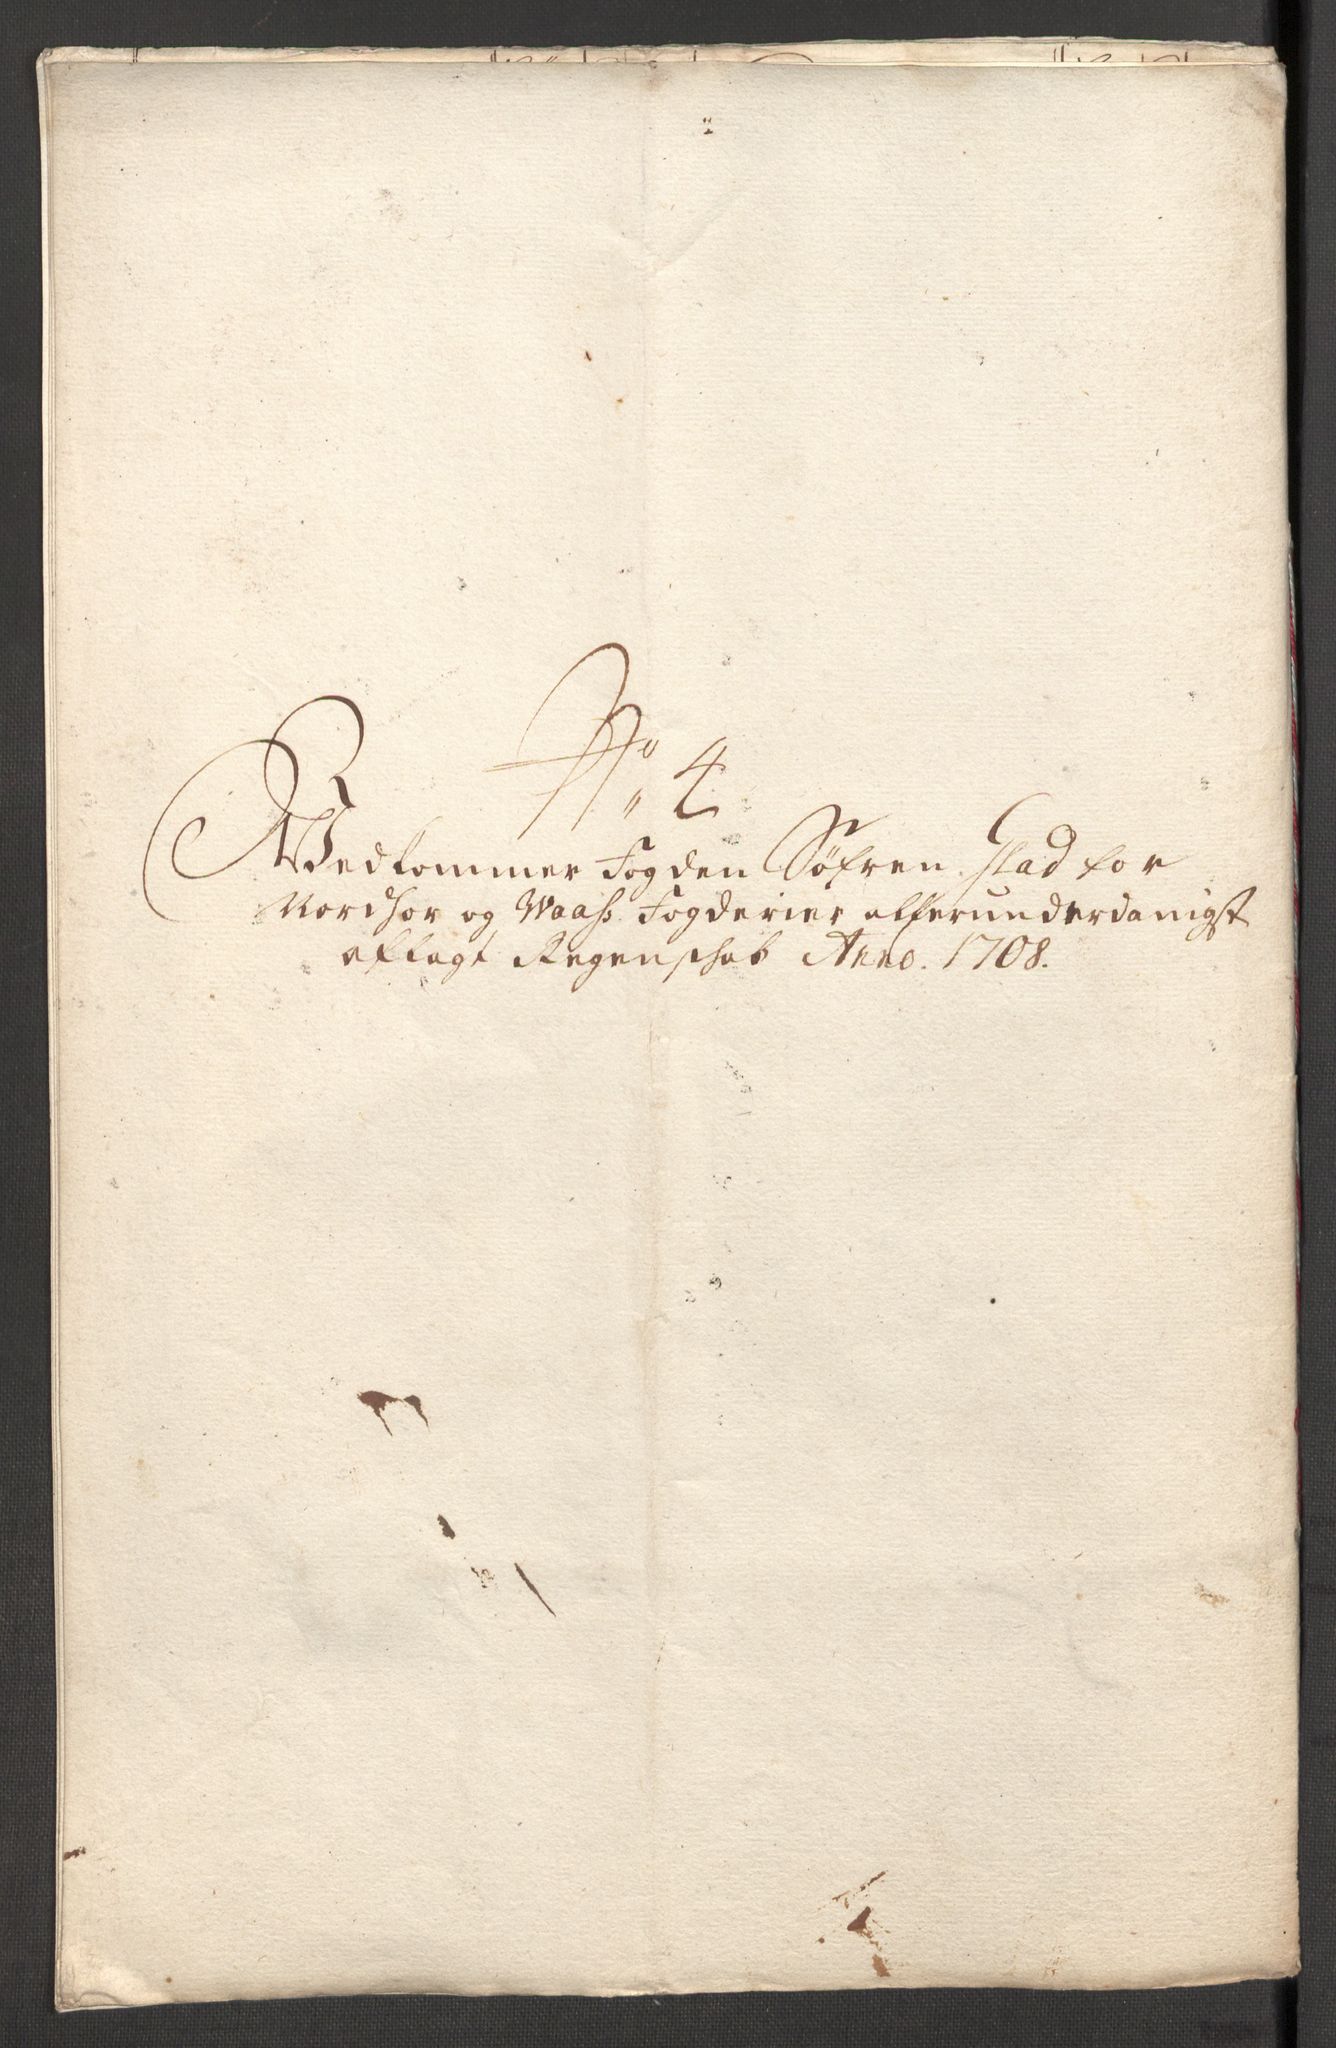 No: 4
Vedkommer Fogden Søfren Glad for
Nordhor og Waass Fogderier allerunderdanigst
aflagt Regenschab Anno. 1708.